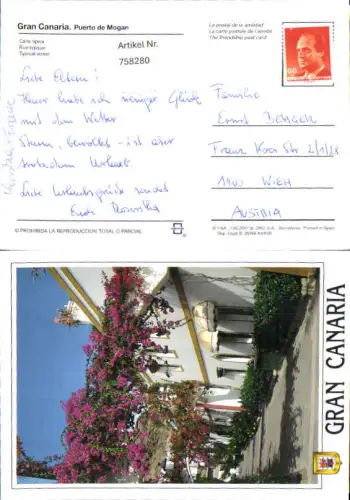 Gran Canaria. Puerto de Mogan
Calle típica
Rue typique
Typical street
Artikel Nr.
758280
La postal de la amistad
La carte postale de l'amitié
The friendship post card
60
Liebe Eltern!
Heuer habe ich weniger Glück
mit dem Wetter
Sturm, bewölkt - ist aber
trotzdem Urlaub
Liebe Urlaubsgrüße sendet
Familie
Ernst BERGER
Franz Koci Str 2/1/28
1100 WIEN
AUSTRIA
© PROHIBIDA LA REPRODUCCION TOTAL O PARCIAL
GRAN CANARIA